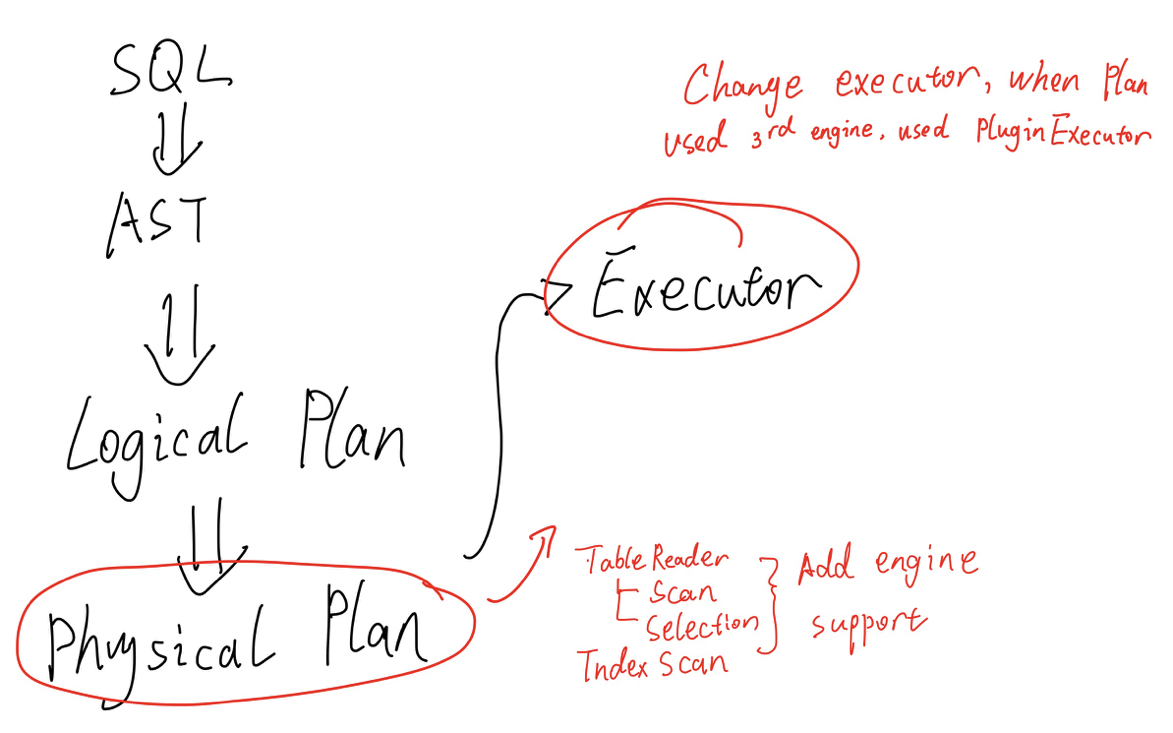 SQL
AST
Logical Plan
Physical Plan
Executor
Change executor, when Plan
used 3rd engine, used PluginExecutor
TableReader
Scan
Selection
Index Scan
Add engine
support